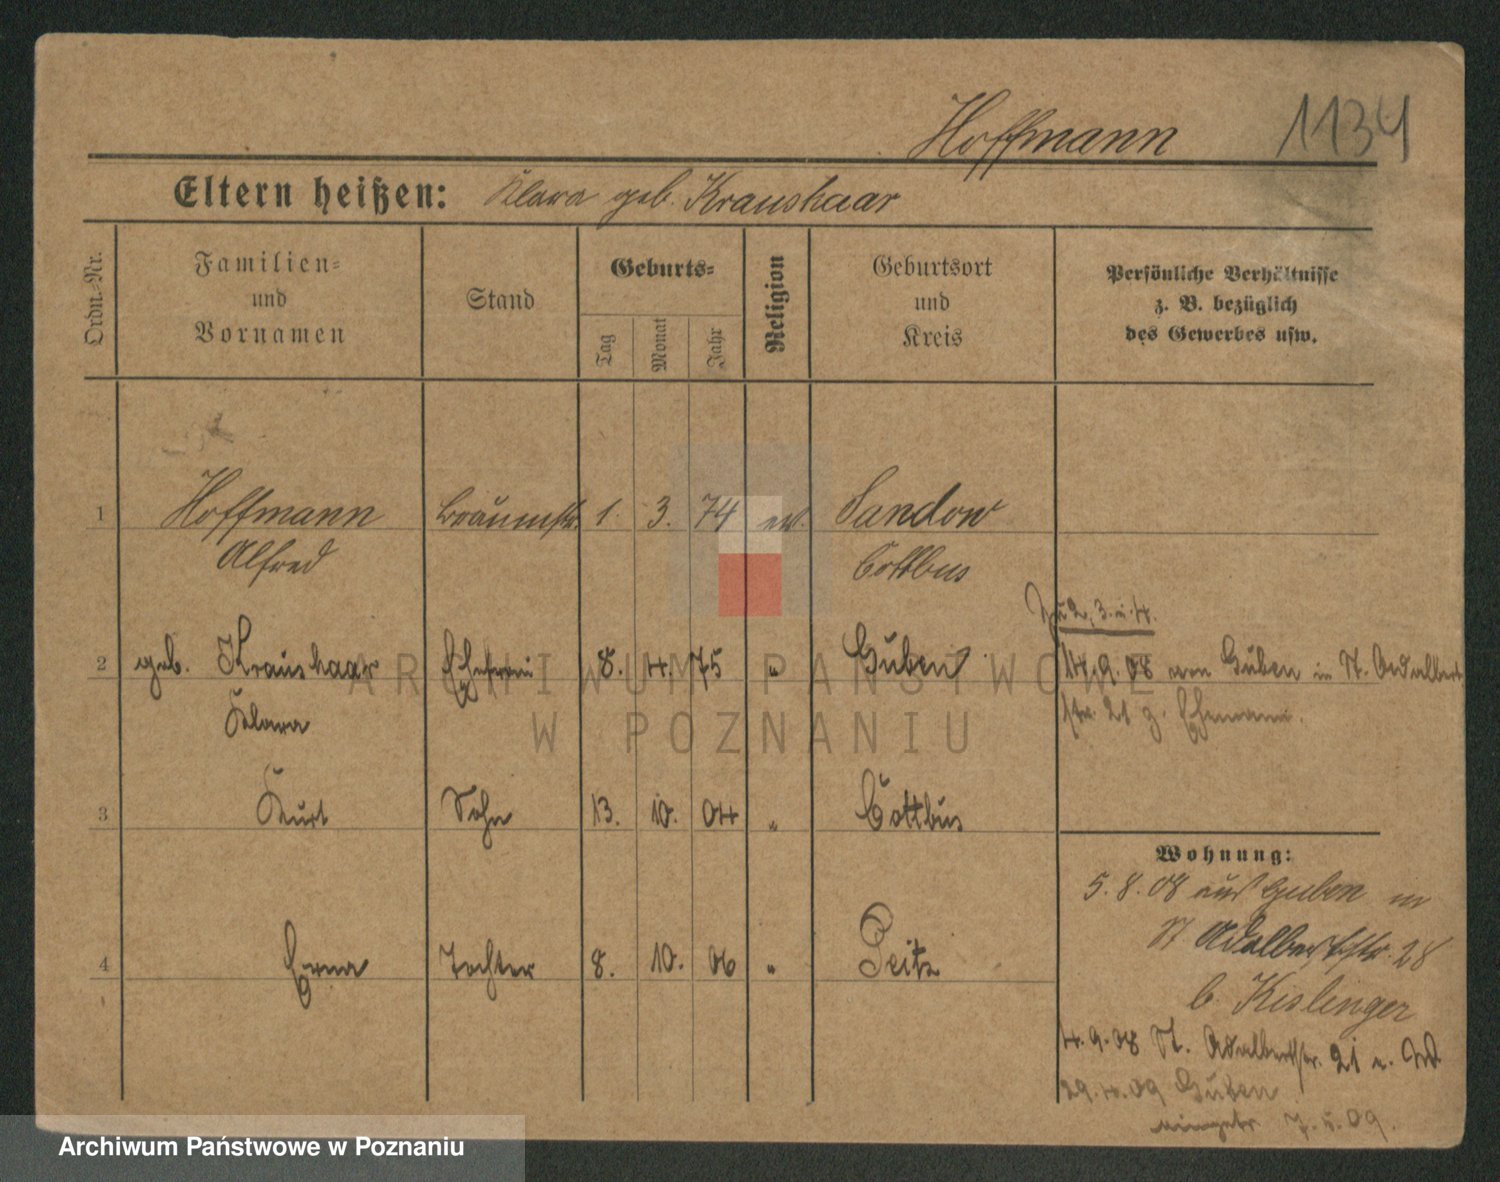 Hoffmann 1134
Eltern heißen: Klara geb. Kraushaar
Ordn.-Nr.
Familien-
und
Vornamen
Stand
Geburts-
Tag
Monat
Jahr
Religion
Geburtsort
und
Kreis
Persönliche Verhältnisse
z. B. bezüglich
des Gewerbes usw.
1 Hoffmann Braumstr. 1. 3. 74 ev. Sandow
Alfred Cottbus
Zu 2, 3. u. 4.
2 geb. Kraushaar Ehefrau 8. 4. 75 " Guben 14.9.08 von Guben in St. Adalbert
Klara str. 21 z. Ehemann.
3 Kurt Sohn 13. 10. 04 " Cottbus
Wohnung:
5. 8. 08 aus Guben in
St Adalbertstr. 28
4 Erna Tochter 8. 10. 06 " Peitz
b. Kislinger
4.9.08 St. Adalbertstr. 21 e. W.
29.4.09 Guben
7.5.09.
ARCHIWUM PAŃSTWOWE
W POZNANIU
Archiwum Państwowe w Poznaniu